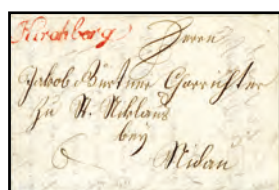 Kirchberg
Herrn
Jakob Bürtner Chorrichter
zu St. Niklaus
bey
Nidau